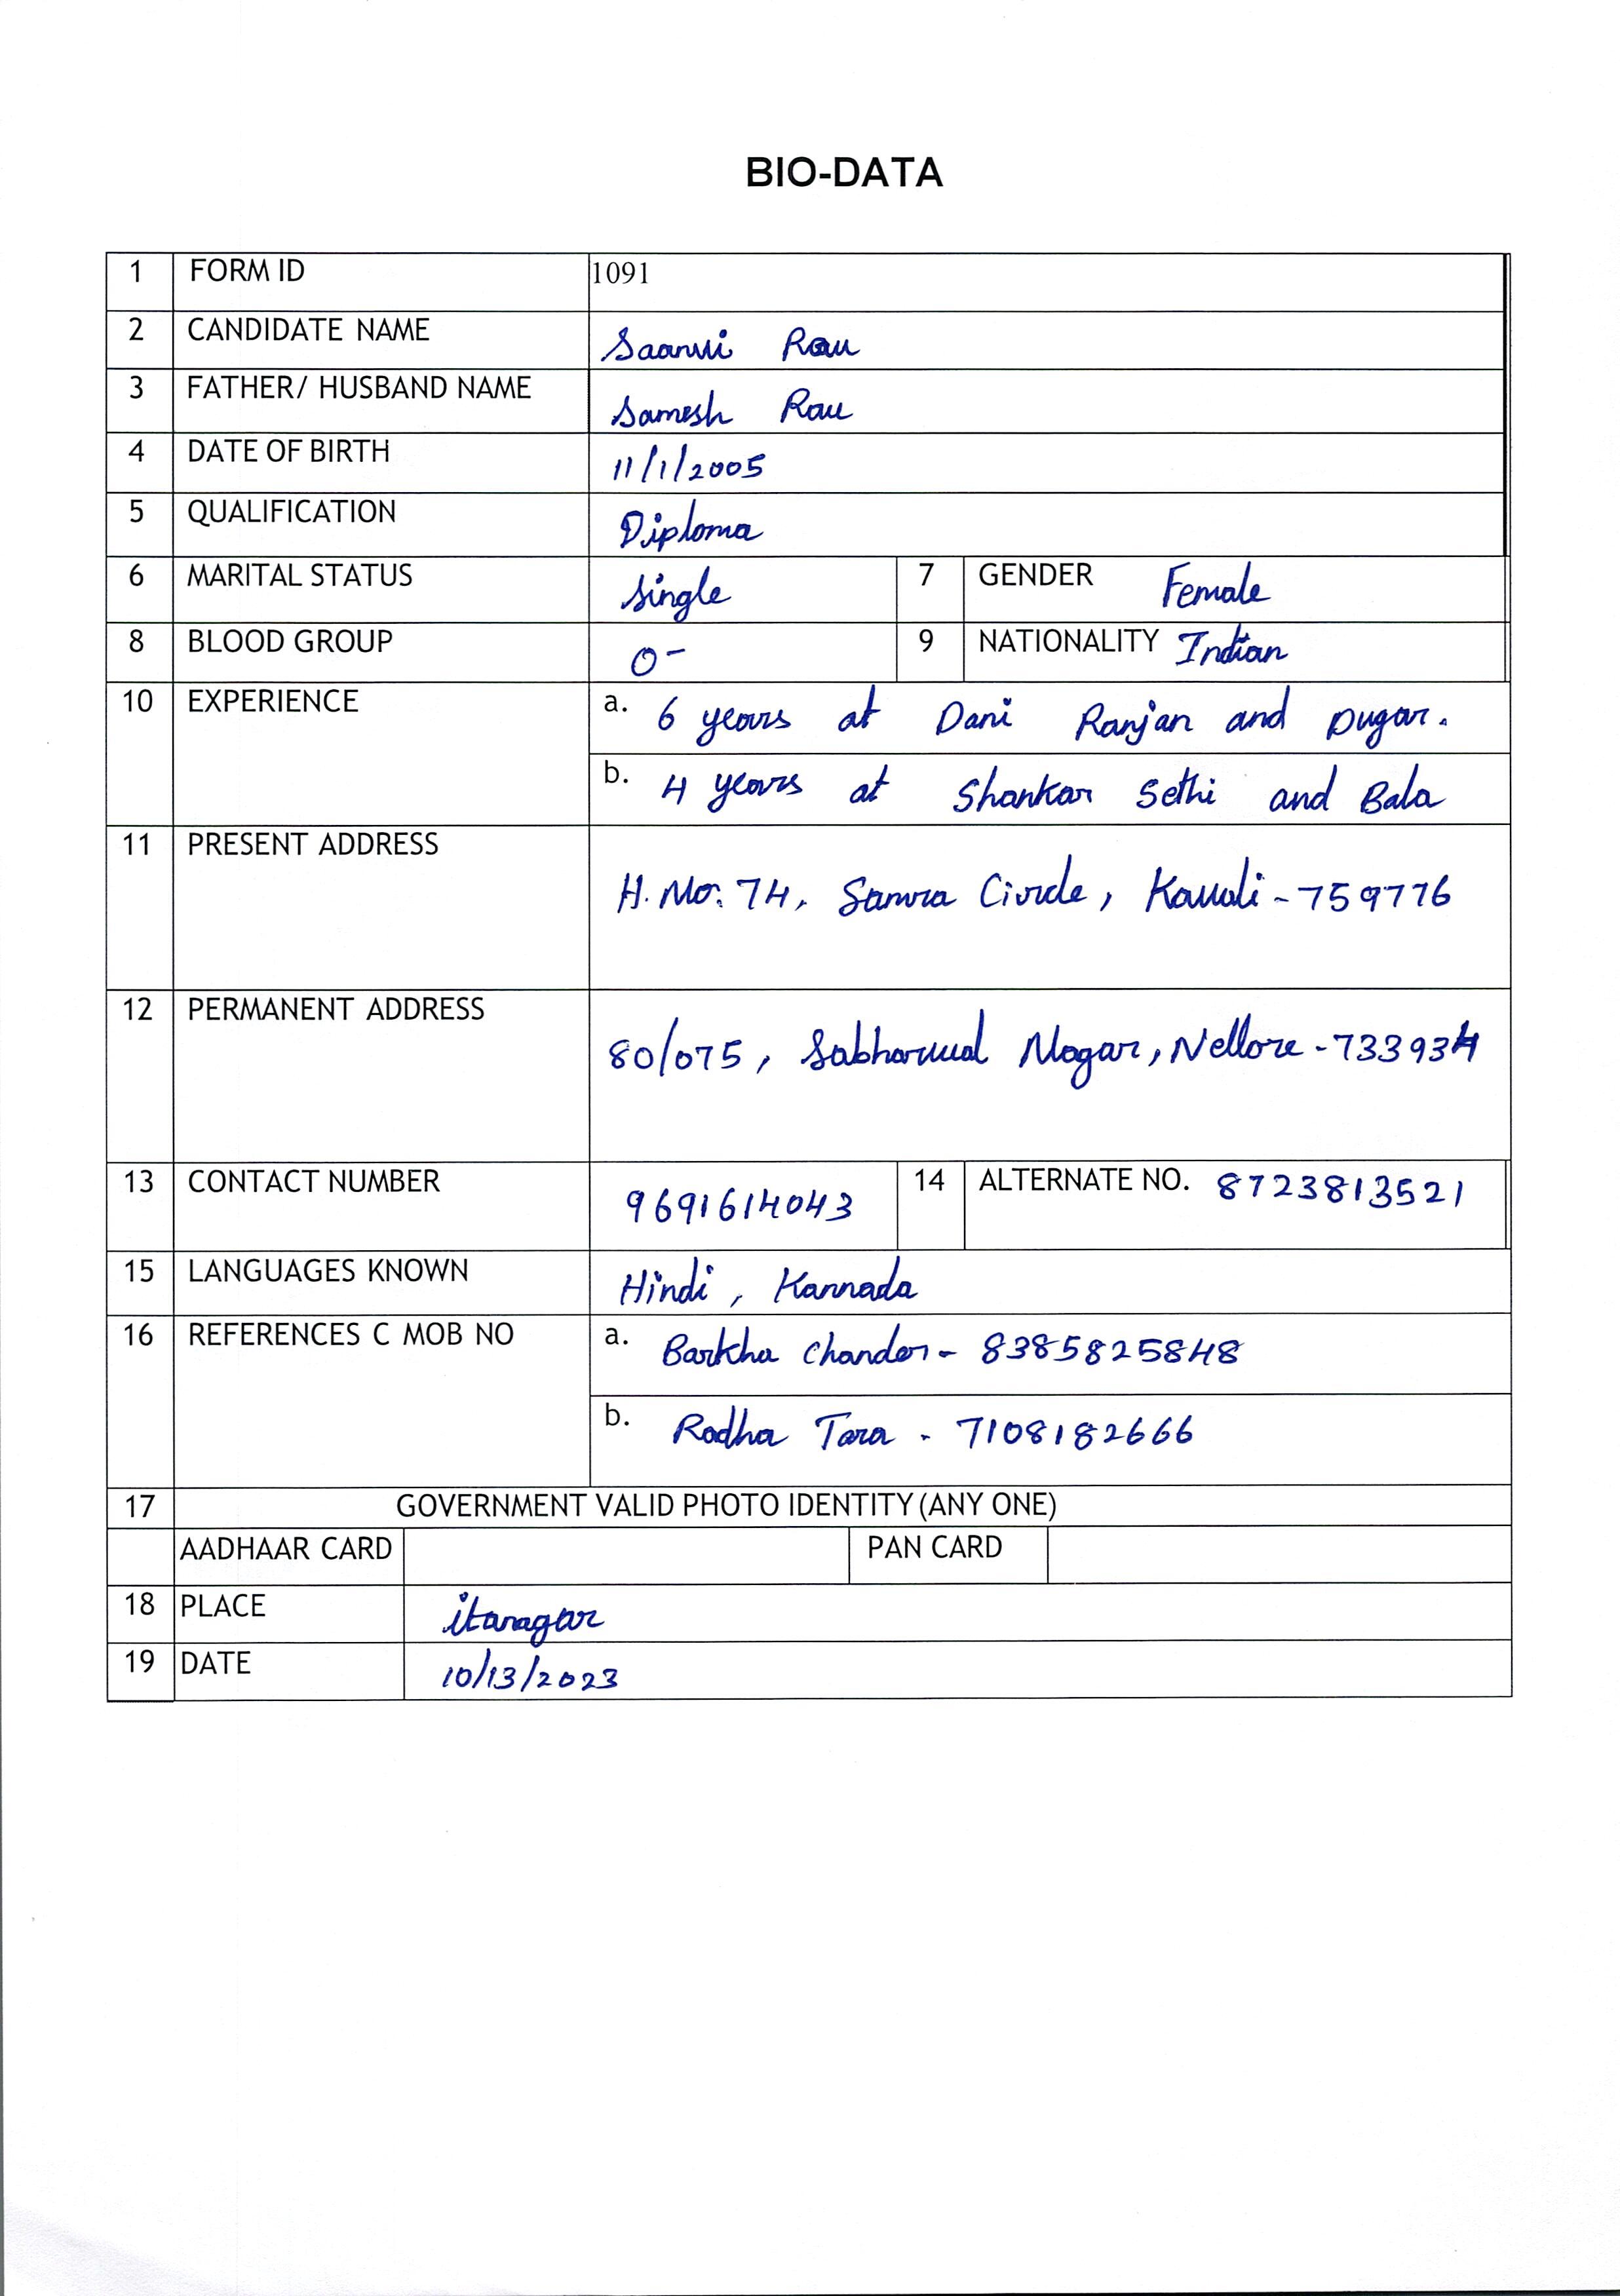 BIO-DATA
1 FORM ID 1091
2 CANDIDATE NAME Saanvi Rau
3 FATHER/ HUSBAND NAME Samesh Rau
4 DATE OF BIRTH 11/1/2005
5 QUALIFICATION Diploma
6 MARITAL STATUS Single 7 GENDER Female
8 BLOOD GROUP O- 9 NATIONALITY Indian
10 EXPERIENCE a. 6 years at Dani Ranjan and Dugar.
b. 4 years at Shankar Sethi and Bala
11 PRESENT ADDRESS H. No. 74, Samra Circle, Kavali - 759776
12 PERMANENT ADDRESS 80/075, Sabharwal Nagar, Nellore - 733934
13 CONTACT NUMBER 9691614043 14 ALTERNATE NO. 8723813521
15 LANGUAGES KNOWN Hindi, Kannada
16 REFERENCES C MOB NO a. Barkha Chander - 8385825848
b. Radha Tara - 7108182666
17 GOVERNMENT VALID PHOTO IDENTITY (ANY ONE)
AADHAAR CARD PAN CARD
18 PLACE itanagar
19 DATE 10/13/2023